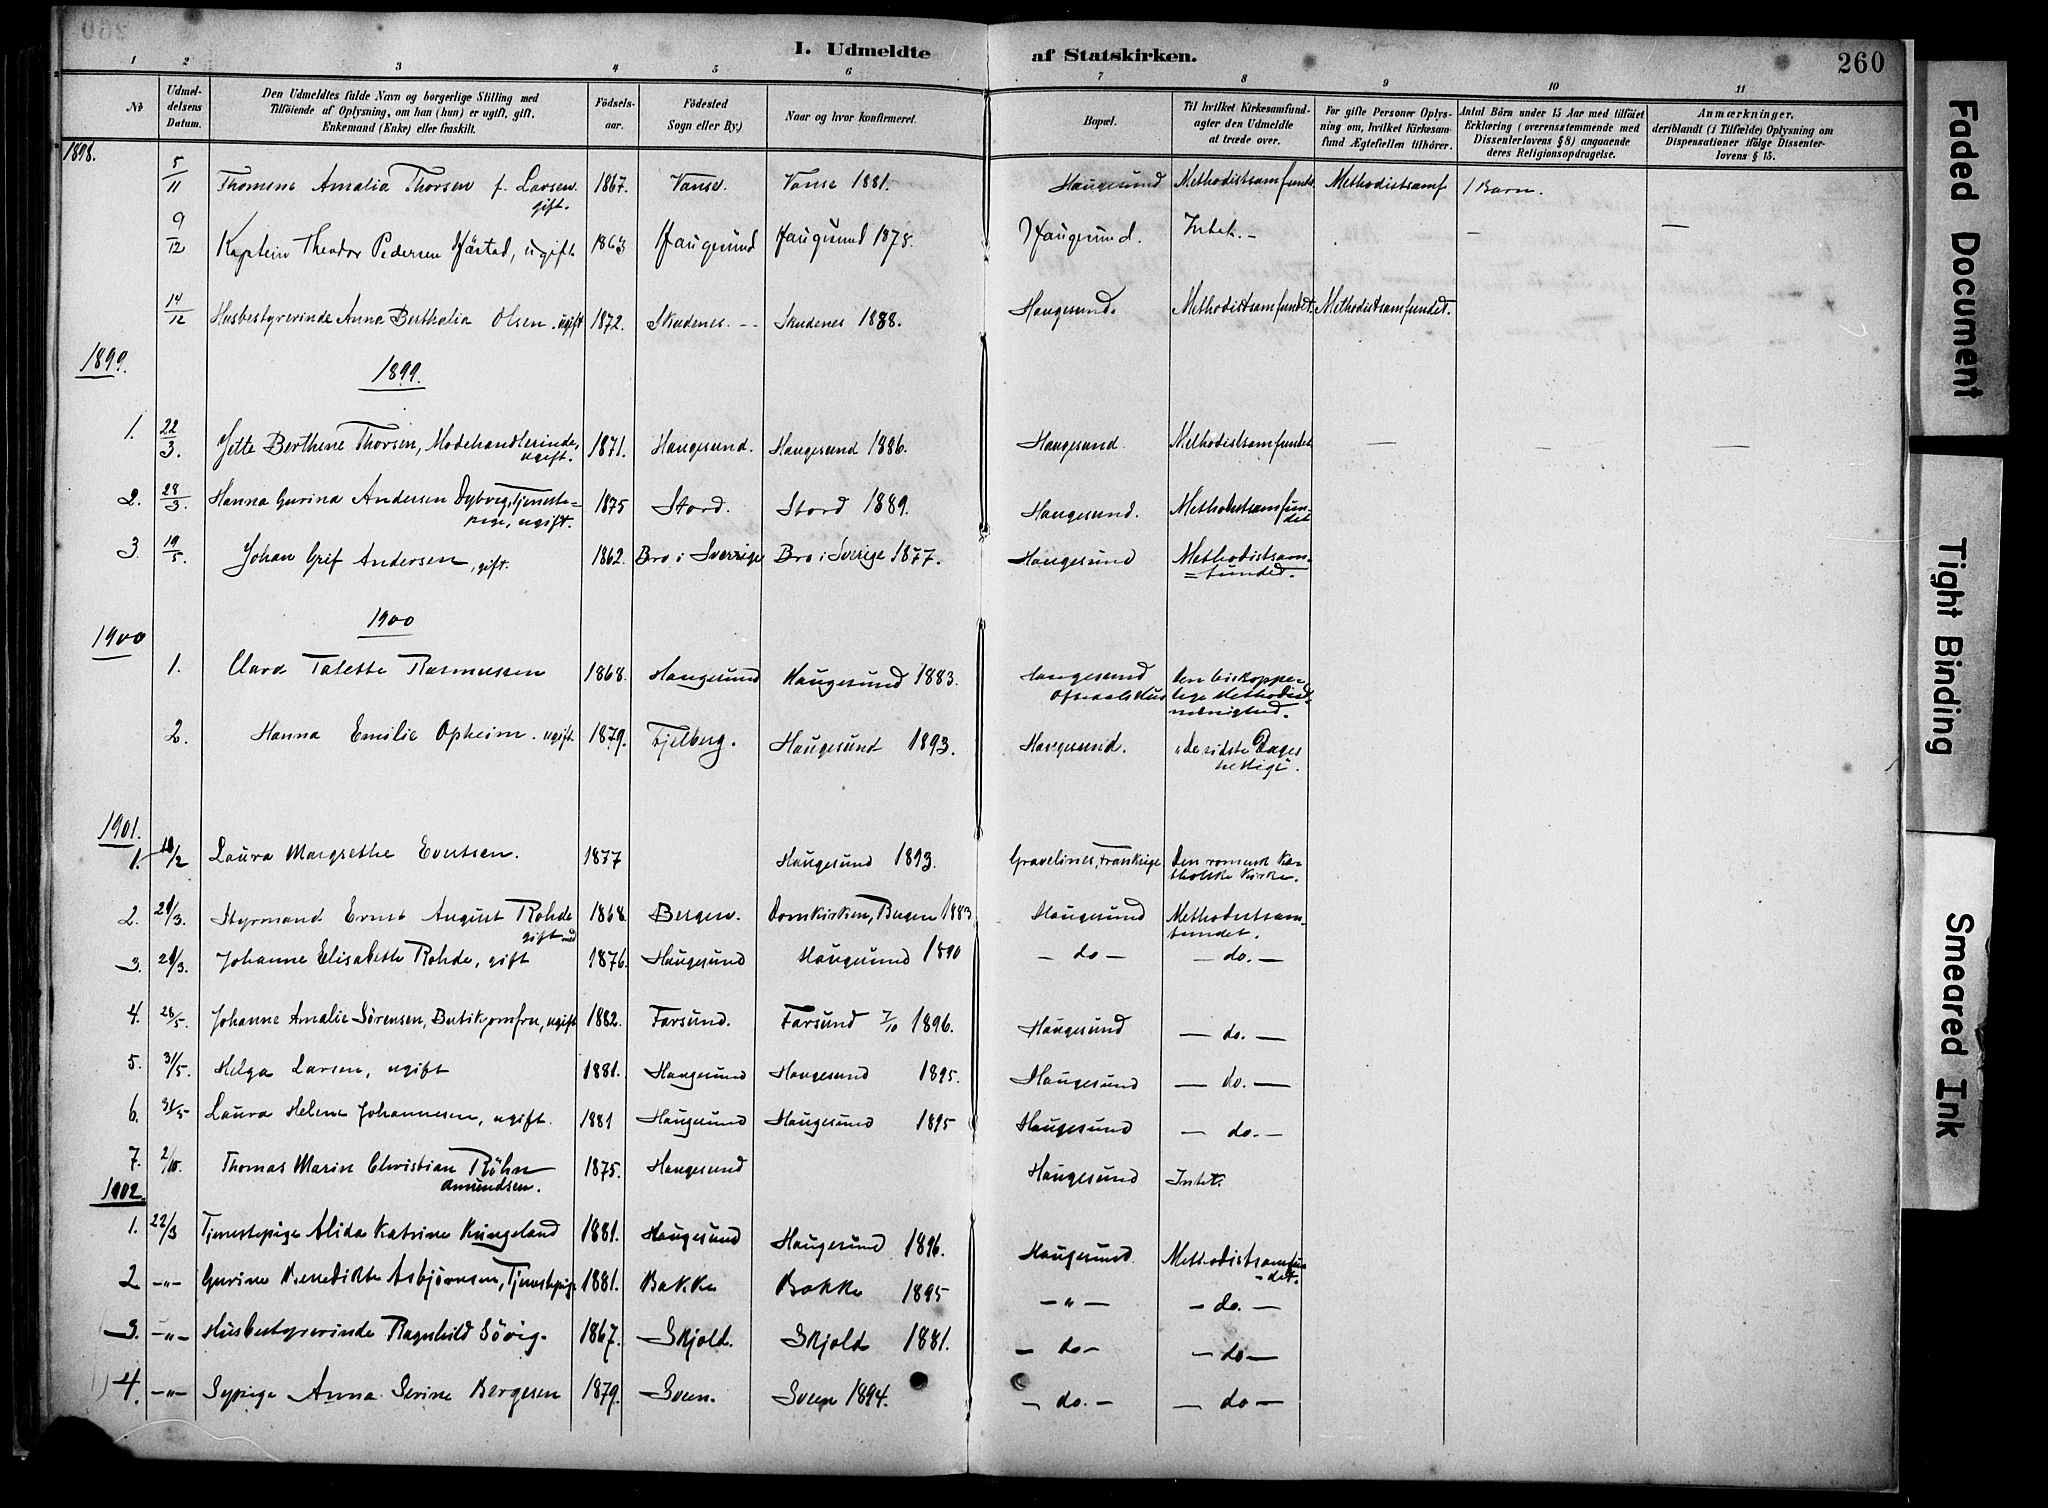 I. Udmeldte af Statskirken.
260
1 2 3 4 5 6 7 8 9 10 11
No
Udmel-
delsens
Datum.
Den Udmeldtes fulde Navn og borgerlige Stilling med
Tilföiende af Oplysning, om han (hun) er ugift, gift,
Enkemand (Enke) eller fraskilt.
Födsels-
aar.
Födested
Sogn eller By.)
Naar og hvor konfirmeret.
Bopæl.
Til hvilket Kirkesamfund-
agter den Udmeldte
at træde over.
For gifte Personer Oplys-
ning om, hvilket Kirkesam-
fund Ægtefællen tilhörer.
Antal Börn under 15 Aar med tilföiet
Erklæring (overensstemmende med
Dissenterlovens § 8) angaaende
deres Religionsopdragelse.
Anmærkninger,
deriblandt (i Tilfælde) Oplysning om
Dispensationer ifölge Dissenter-
lovens § 15.
1898.
5/11 Thomine Amalia Thorsen f. Larsen gift. 1867. Vanse. Vanse 1881. Haugesund Methodistsamfundet Methodistsamf 1 Barn.
9/12 Kaptein Theodor Pedersen, ugift 1863 Haugesund Haugesund 1878. Haugesund. Intet. – – –
14/12 Husbestyrerinde Anna Berthalia Olsen. ugift 1872. Skudenes. – – Skudenes 1888. Haugesund. Methodistsamfundet. Methodistsamfundet.
1899. 1899.
1. 22/3. Jette Berthine Thorsen, Modehandlerinde, ugift. 1871. Haugesund. Haugesund 1886. Haugesund. Methodistsamfundet – – –
2. 28/3. Hanna Gurina Andersen Dyborg, Tjeneste= pige, ugift. 1875 Stord. Stord 1889. Haugesund. Methodistsamfun= det
3. 19/5. Johan Grif Andersen, gift. 1862. Bro i Sverrige Bro i Sverige 1877. Haugesund Methodistsam= =fundet.
1900 1900
1. Clara Talette Rasmussen 1868. Haugesund Haugesund 1883. Haugesund Den biskoppe= lige Methodist menighed.
2. Hanna Emilie Opheim. ugift 1879. Fjelberg. Haugesund 1893. Haugesund. "De sidste Dages hellige".
1901.
1. 18/2 Laura Margrethe Evertsen. 1877 Haugesund 1893. Gravelines, Frankrige Den romersk ka= tholske Kirke.
2. 21/3. Styrmand Ernst August Rohde gift med 1868. Bergen. Domkirken, Bergen 1883 Haugesund Methodistsam= fundet.
3. 21/3. Johanne Elisabeth Rohde, gift 1876. Haugesund Haugesund 1890 – do – – do. –
4. 28/5. Johanne Amalie Sörensen, Butikjomfru, ugift 1882. Farsund. Farsund 7/10 1896. Haugesund – do. –
5. 31/5. Helga Larsen, ugift 1881. Haugesund Haugesund 1895. Haugesund – do. –
6. 31/5 Laura Helene Johannesen, ugift. 1881 Haugesund Haugesund 1895 Haugesund – do. –
7. 2/10. Thomas Marin Christian Röhn Amundsen. 1875. Haugesund Haugesund Intet.
1902.
1. 22/3 Tjenestepige Alida Katrine Kringeland 1881. Haugesund Haugesund 1896. Haugesund Methodistsamfun –det.
2 –"– Gurine Benedikte Asbjörnsen, Tjenestepige 1881. Bakke Bakke 1895 – " – – do. –
3. –"– Husbestyrerinde Ragnhild Sövig. 1867. Skjold. Skjold 1881. – do – – do –
4. –"– Sypige Anna Serine Bergesen 1879. Sveen. Sveen 1894. – do. – – do –
Faded Document
Tight Binding
Smeared Ink